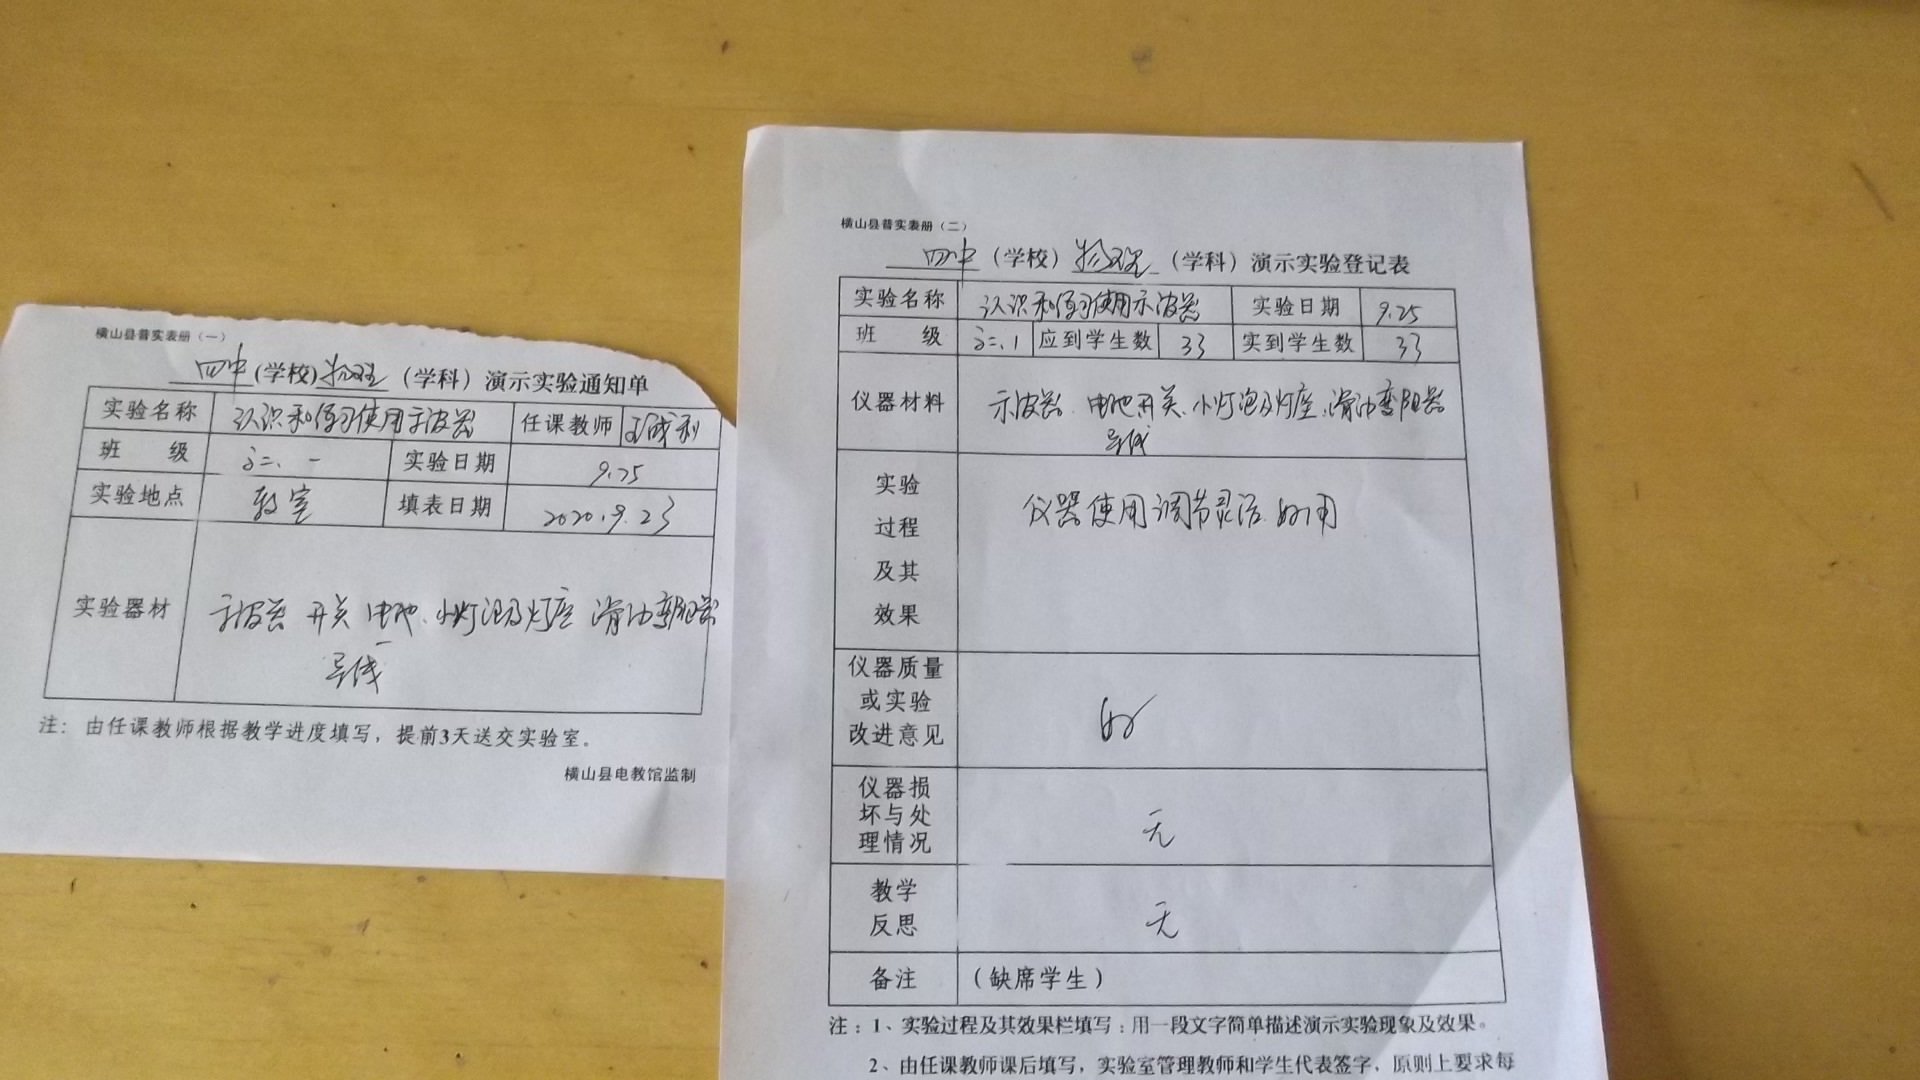 横山县普实表册（一）
四中（学校）物理（学科）演示实验通知单
实验名称 认识和练习使用示波器 任课教师
班 级 实验日期 9.25
实验地点 教室 填表日期 2020.9.23
实验器材 示波器 开关 电池、小灯泡及灯座 滑动变阻器
导线
注：由任课教师根据教学进度填写，提前3天送交实验室。
横山县电教馆监制
横山县普实表册（二）
四中（学校）物理（学科）演示实验登记表
实验名称 认识和练习使用示波器 实验日期 9.25
班 级 应到学生数 33 实到学生数 33
仪器材料 示波器、电池开关、小灯泡及灯座、滑动变阻器
导线
实验
过程
及其
效果
仪器使用调节灵活、好用
仪器质量
或实验
改进意见
好
仪器损
坏与处
理情况
无
教学
反思
无
备注 （缺席学生）
注：1、实验过程及其效果栏填写：用一段文字简单描述演示实验现象及效果。
2、由任课教师课后填写，实验室管理教师和学生代表签字，原则上要求每